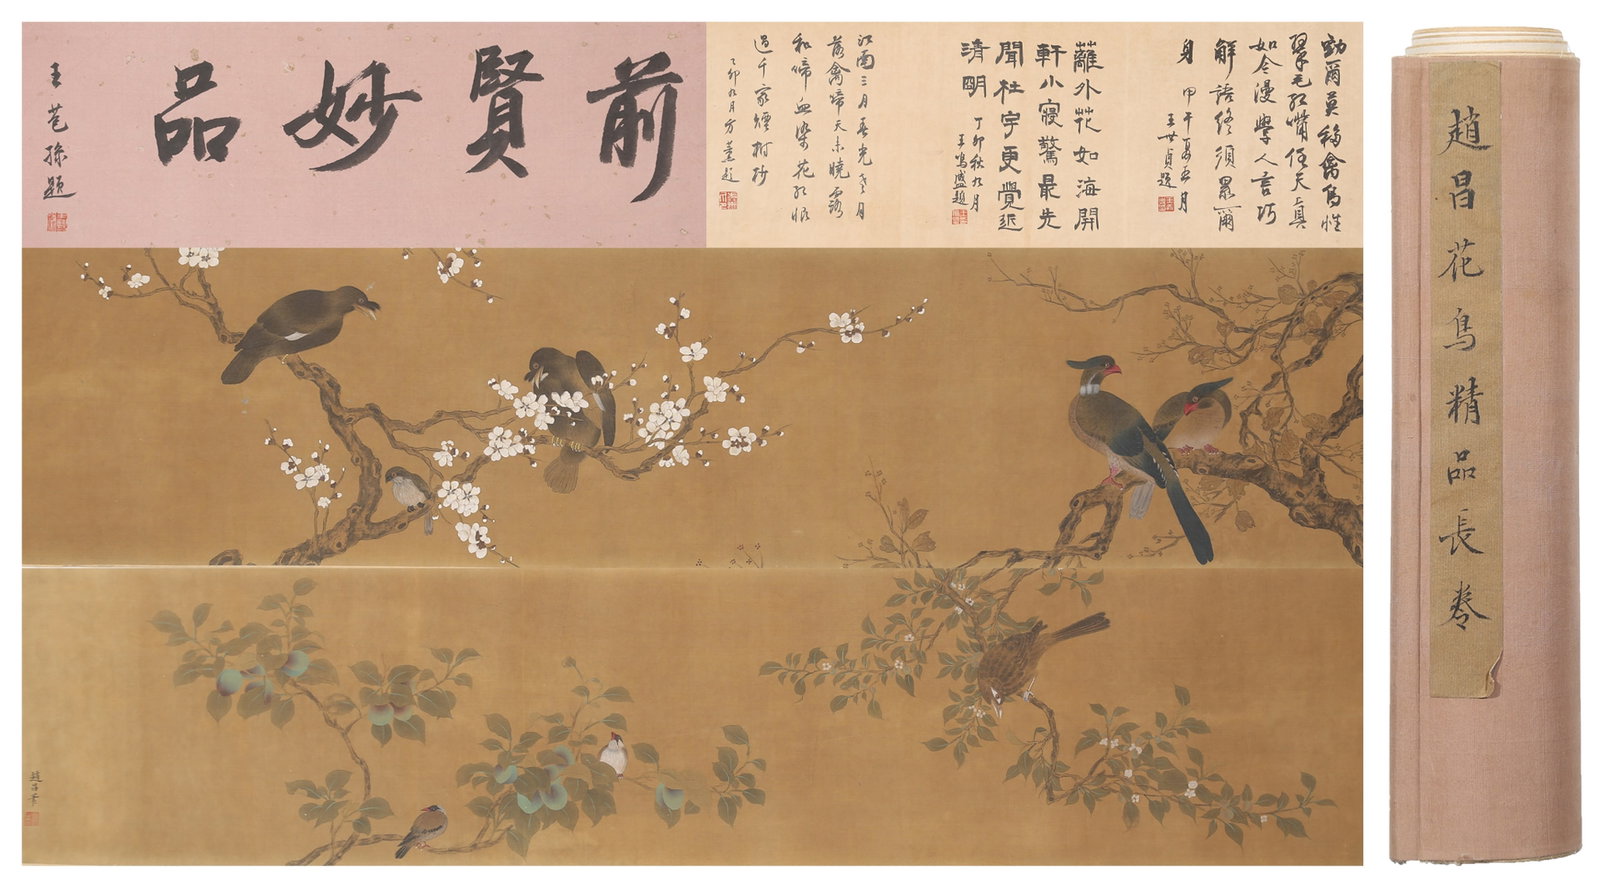 前賢妙品
王芑孫題
勁爾莫移禽鳥性
翠毛紅嘴任天真
如今漫學人言巧
解語終須累爾
身 甲午夏五月
王世貞題
蘺外花如海開
軒小寢驚最先
聞杜宇更覺近
清明 丁卯秋九月
王鳴盛題
江南三月春光老月
落禽啼天未曉露
和啼血染花紅恨
過千家煙樹杪
乙卯九月方薰題
趙昌筆
趙昌花鳥精品長卷